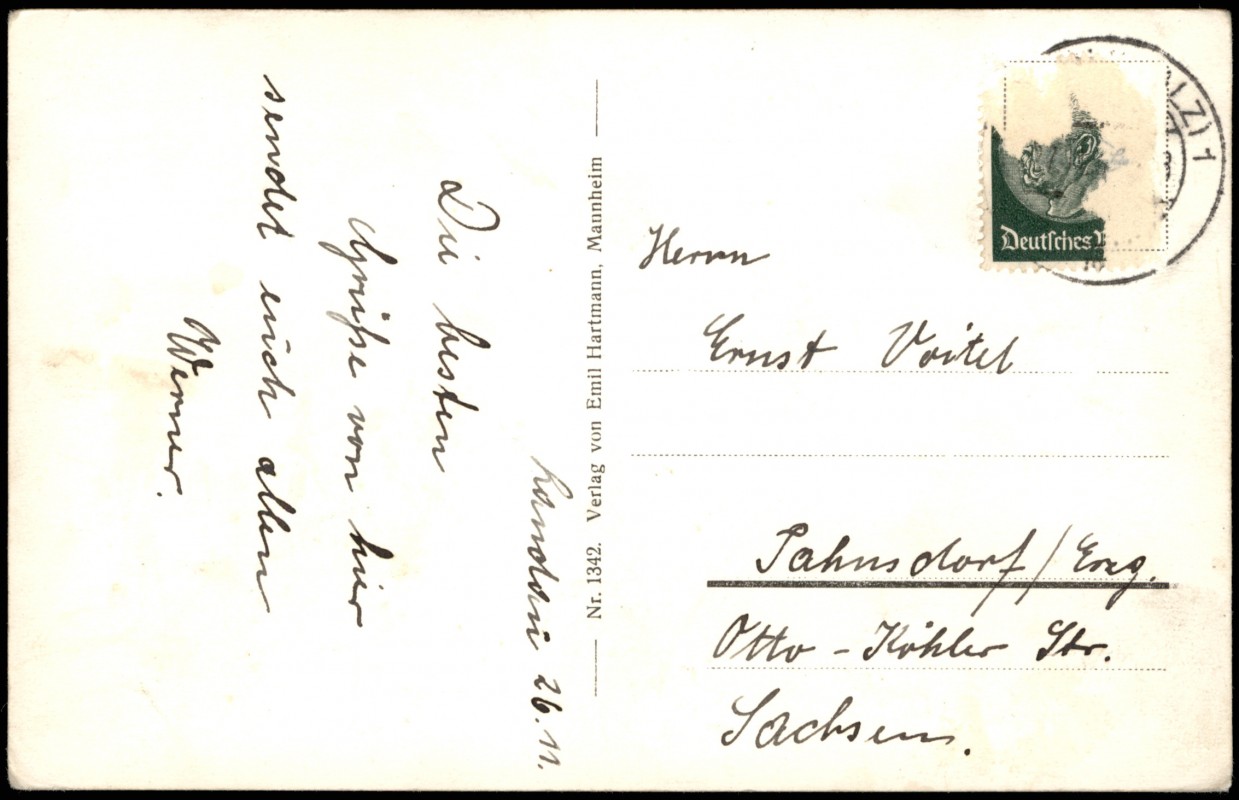 Landau 26.11.
Die besten
Grüße von hier
sendet euch allen
Werner.
Nr. 1342. Verlag von Emil Hartmann, Mannheim
LZ) 1
Deutsches
Herrn
Ernst Voitel
Jahnsdorf / Erzg.
Otto-Köhler Str.
Sachsen.